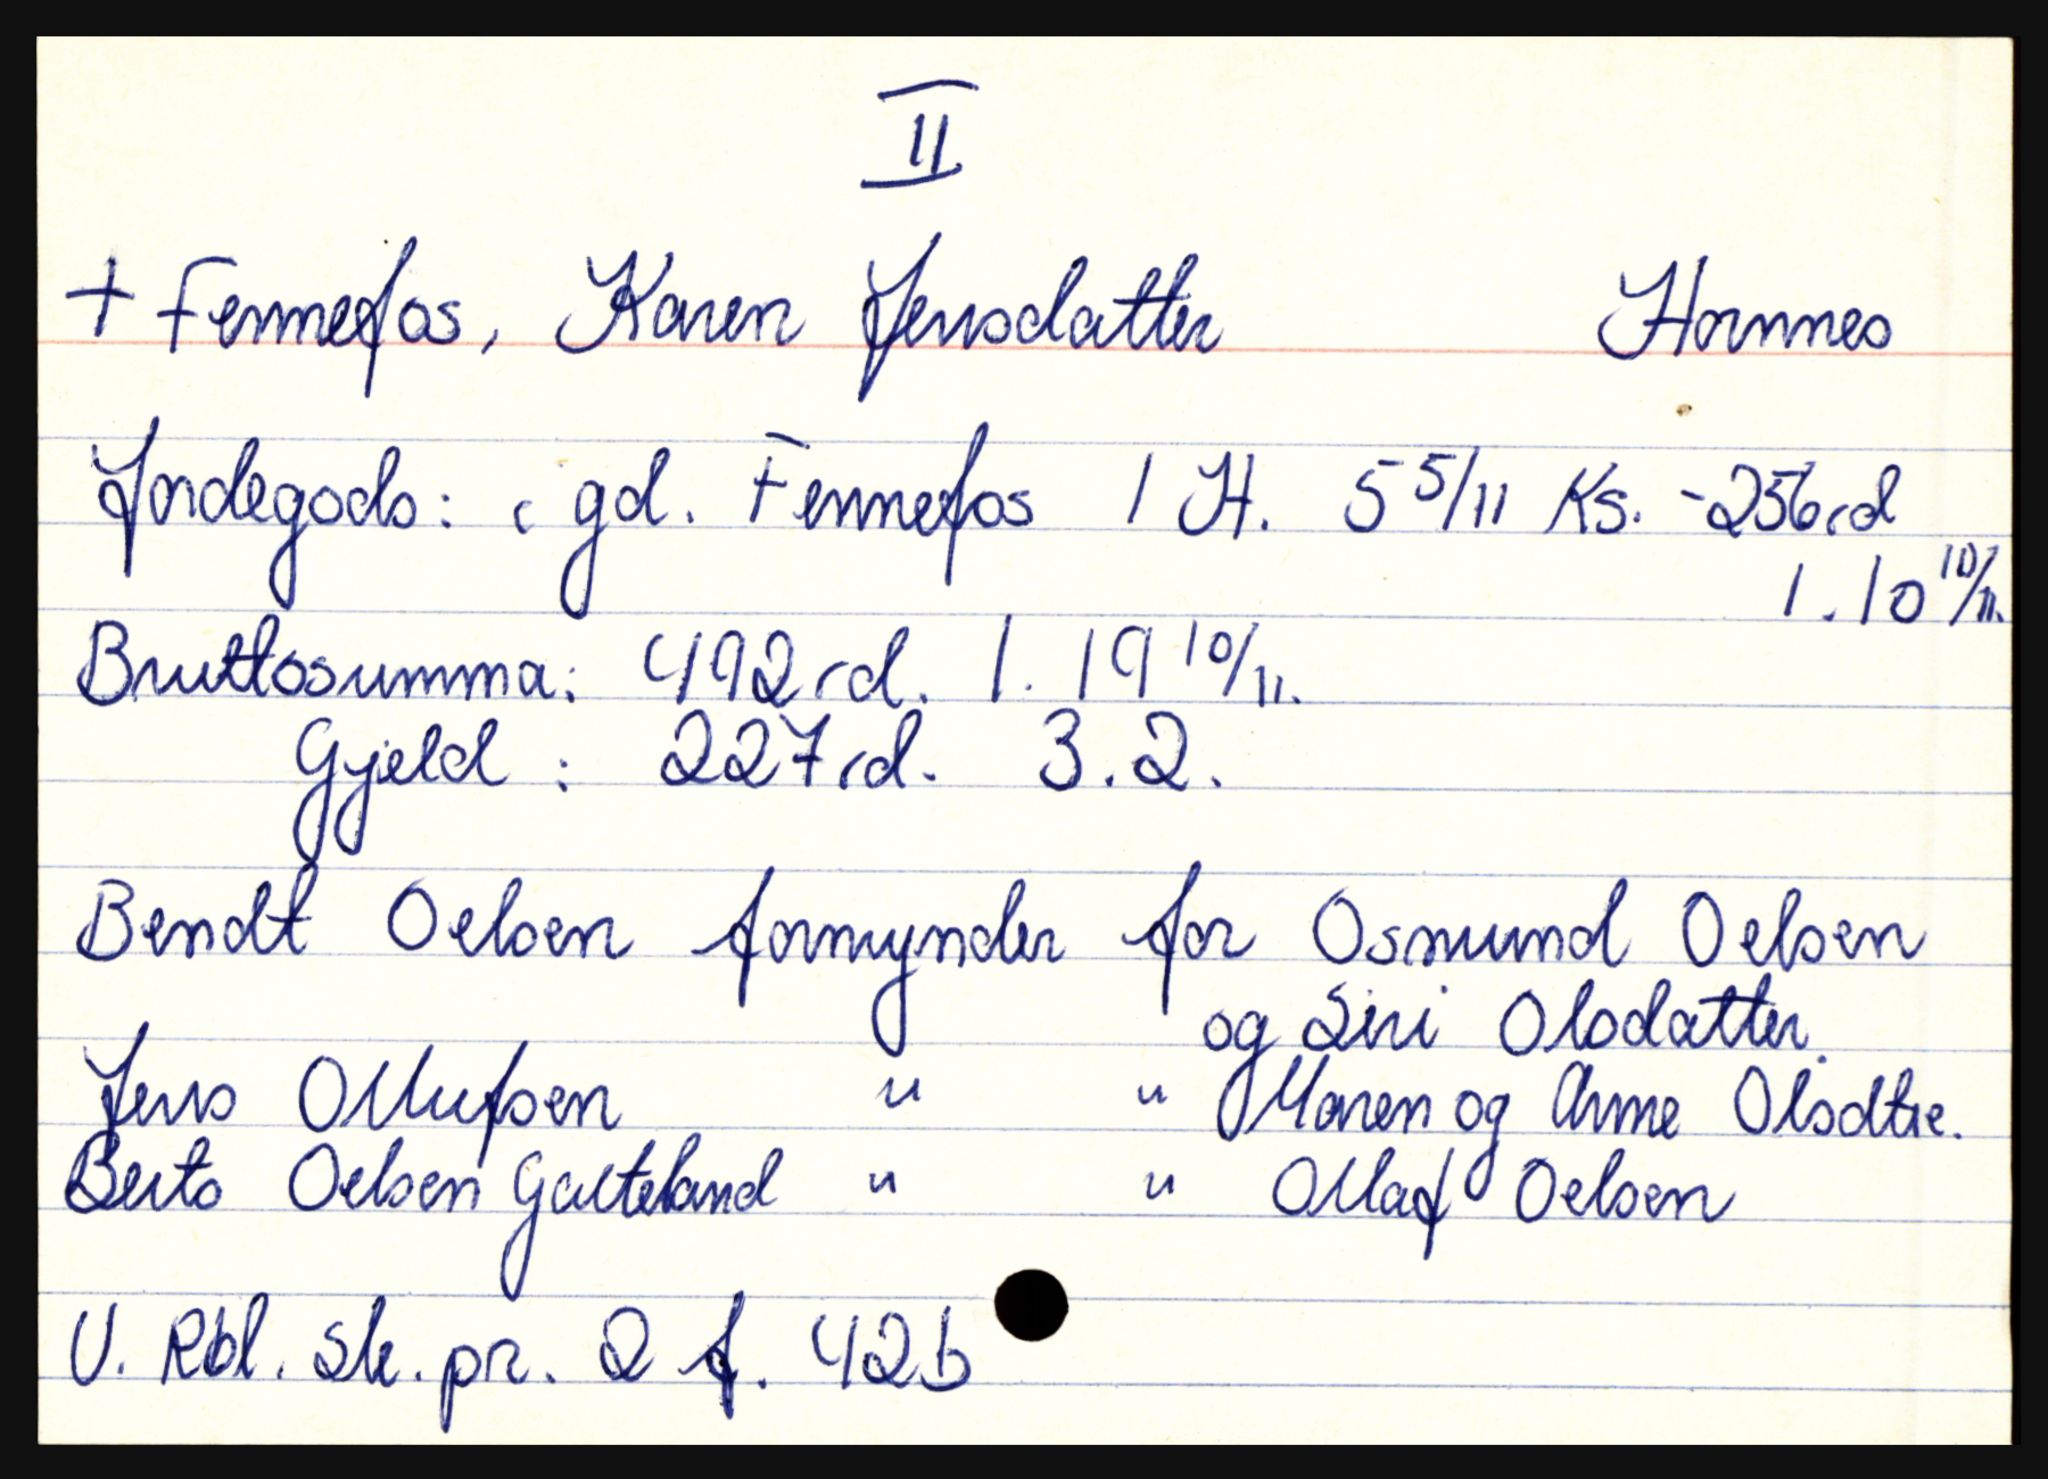 II
+ Fennefos, Karen Jensdatter Hornnes
Jordegods: i gd. Fennefos 1 H. 5 5/11 Ks. - 256 rd
1. 10 10/11.
Bruttosumma: 492 rd. 1. 19 10/11.
Gjeld : 227 rd. 3. 2.
Bendt Oelsen formynder for Osmund Oelsen
og Siri Olsdatter.
Jens Ollufsen " " Maren og Anne Olsdtre.
Bento Oelsen Galteland " " Ollaf Oelsen
V. Rbl. Sk. pr. 2 f. 42b